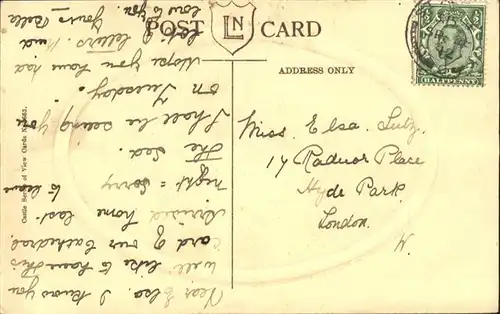 POST CARD
LN
ADDRESS ONLY
HALFPENNY
Miss Elsa Lutz,
17 Radnor Place
Hyde Park.
London.
W.
Dear Elsa. I know you
will like to have this
card of our Cathedral.
Arrived home last
night = Sorry to leave
the Sea.
I shall be seeing you
on Tuesday.
Hope you have had
letters. Kind
love to you
Yours Belle
Castle Series of View Cards